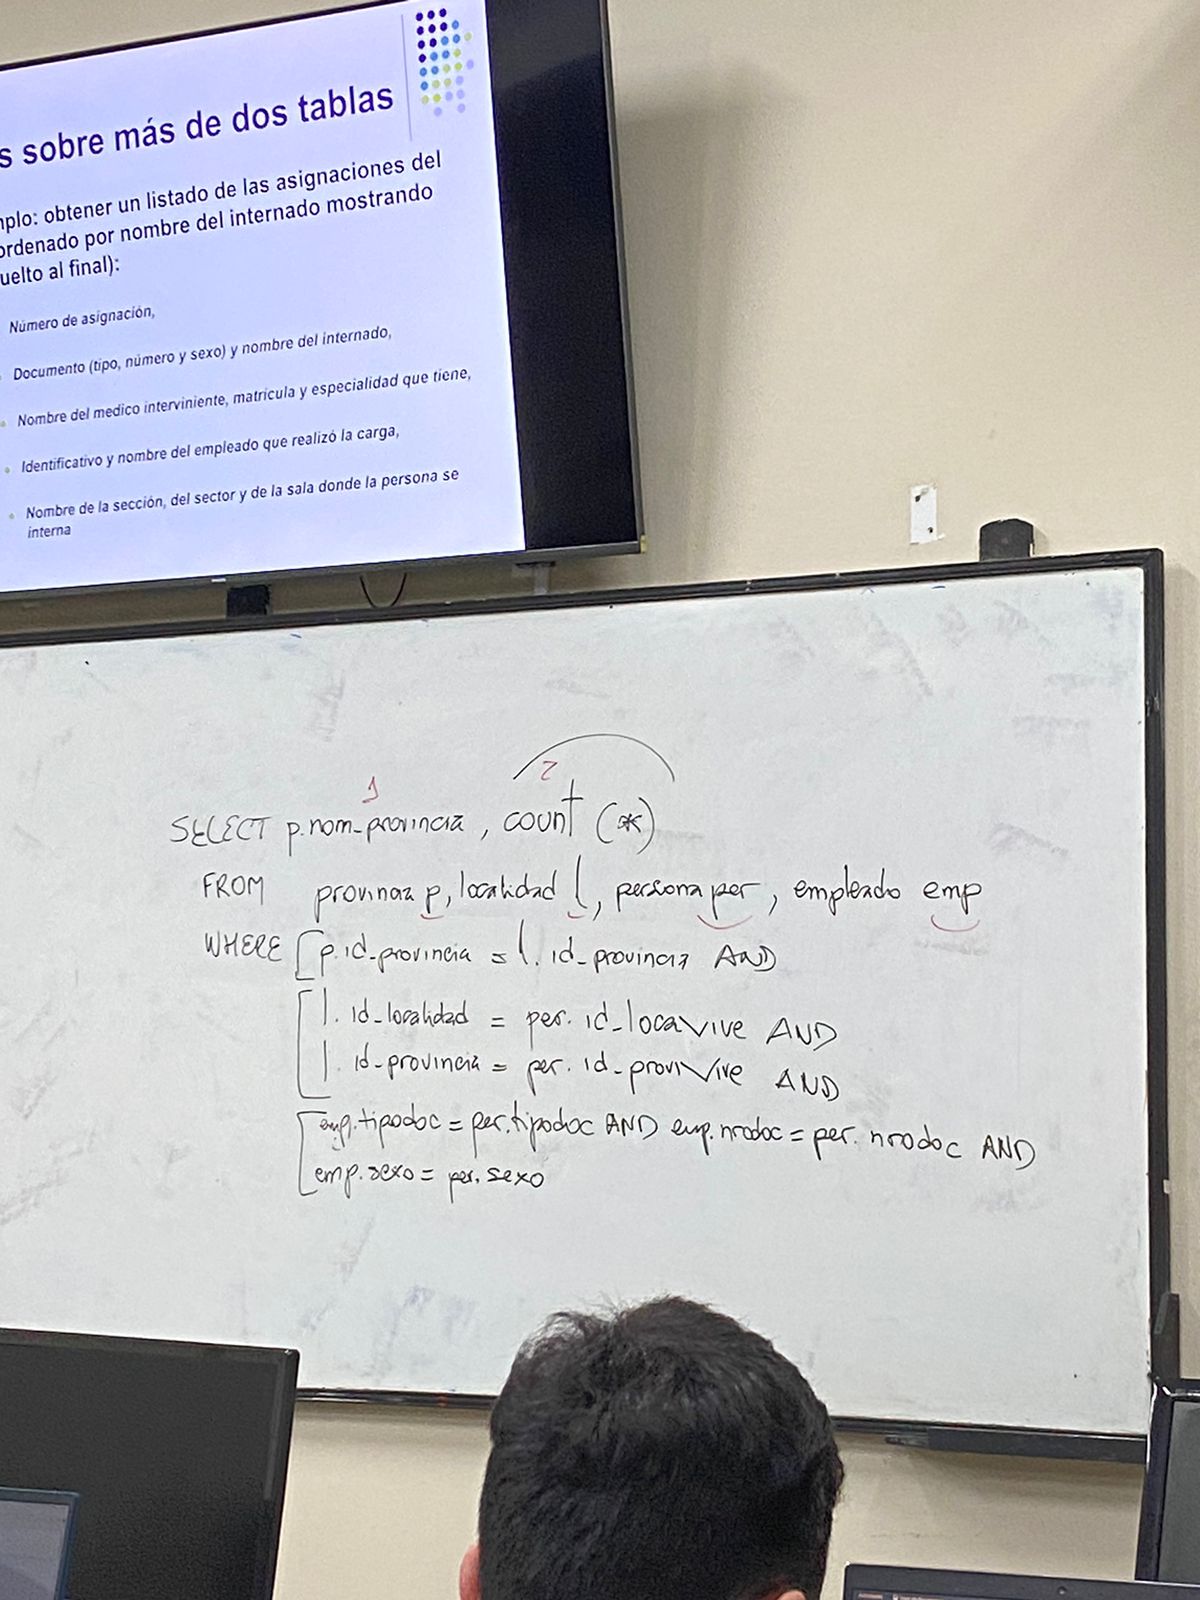 s sobre más de dos tablas
mplo: obtener un listado de las asignaciones del
ordenado por nombre del internado mostrando
uelto al final):
Número de asignación,
Documento (tipo, número y sexo) y nombre del internado,
Nombre del medico interviniente, matrícula y especialidad que tiene,
Identificativo y nombre del empleado que realizó la carga,
Nombre de la sección, del sector y de la sala donde la persona se
interna
1 2
SELECT p.nom_provincia, count (*)
FROM provincia p, localidad l, persona per, empleado emp
WHERE p.id_provincia = l.id_provincia AND
l.id_localidad = per.id_locavive AND
l.id_provincia = per.id_provivive AND
emp.tipodoc = per.tipodoc AND emp.nrodoc = per.nrodoc AND
emp.sexo = per.sexo